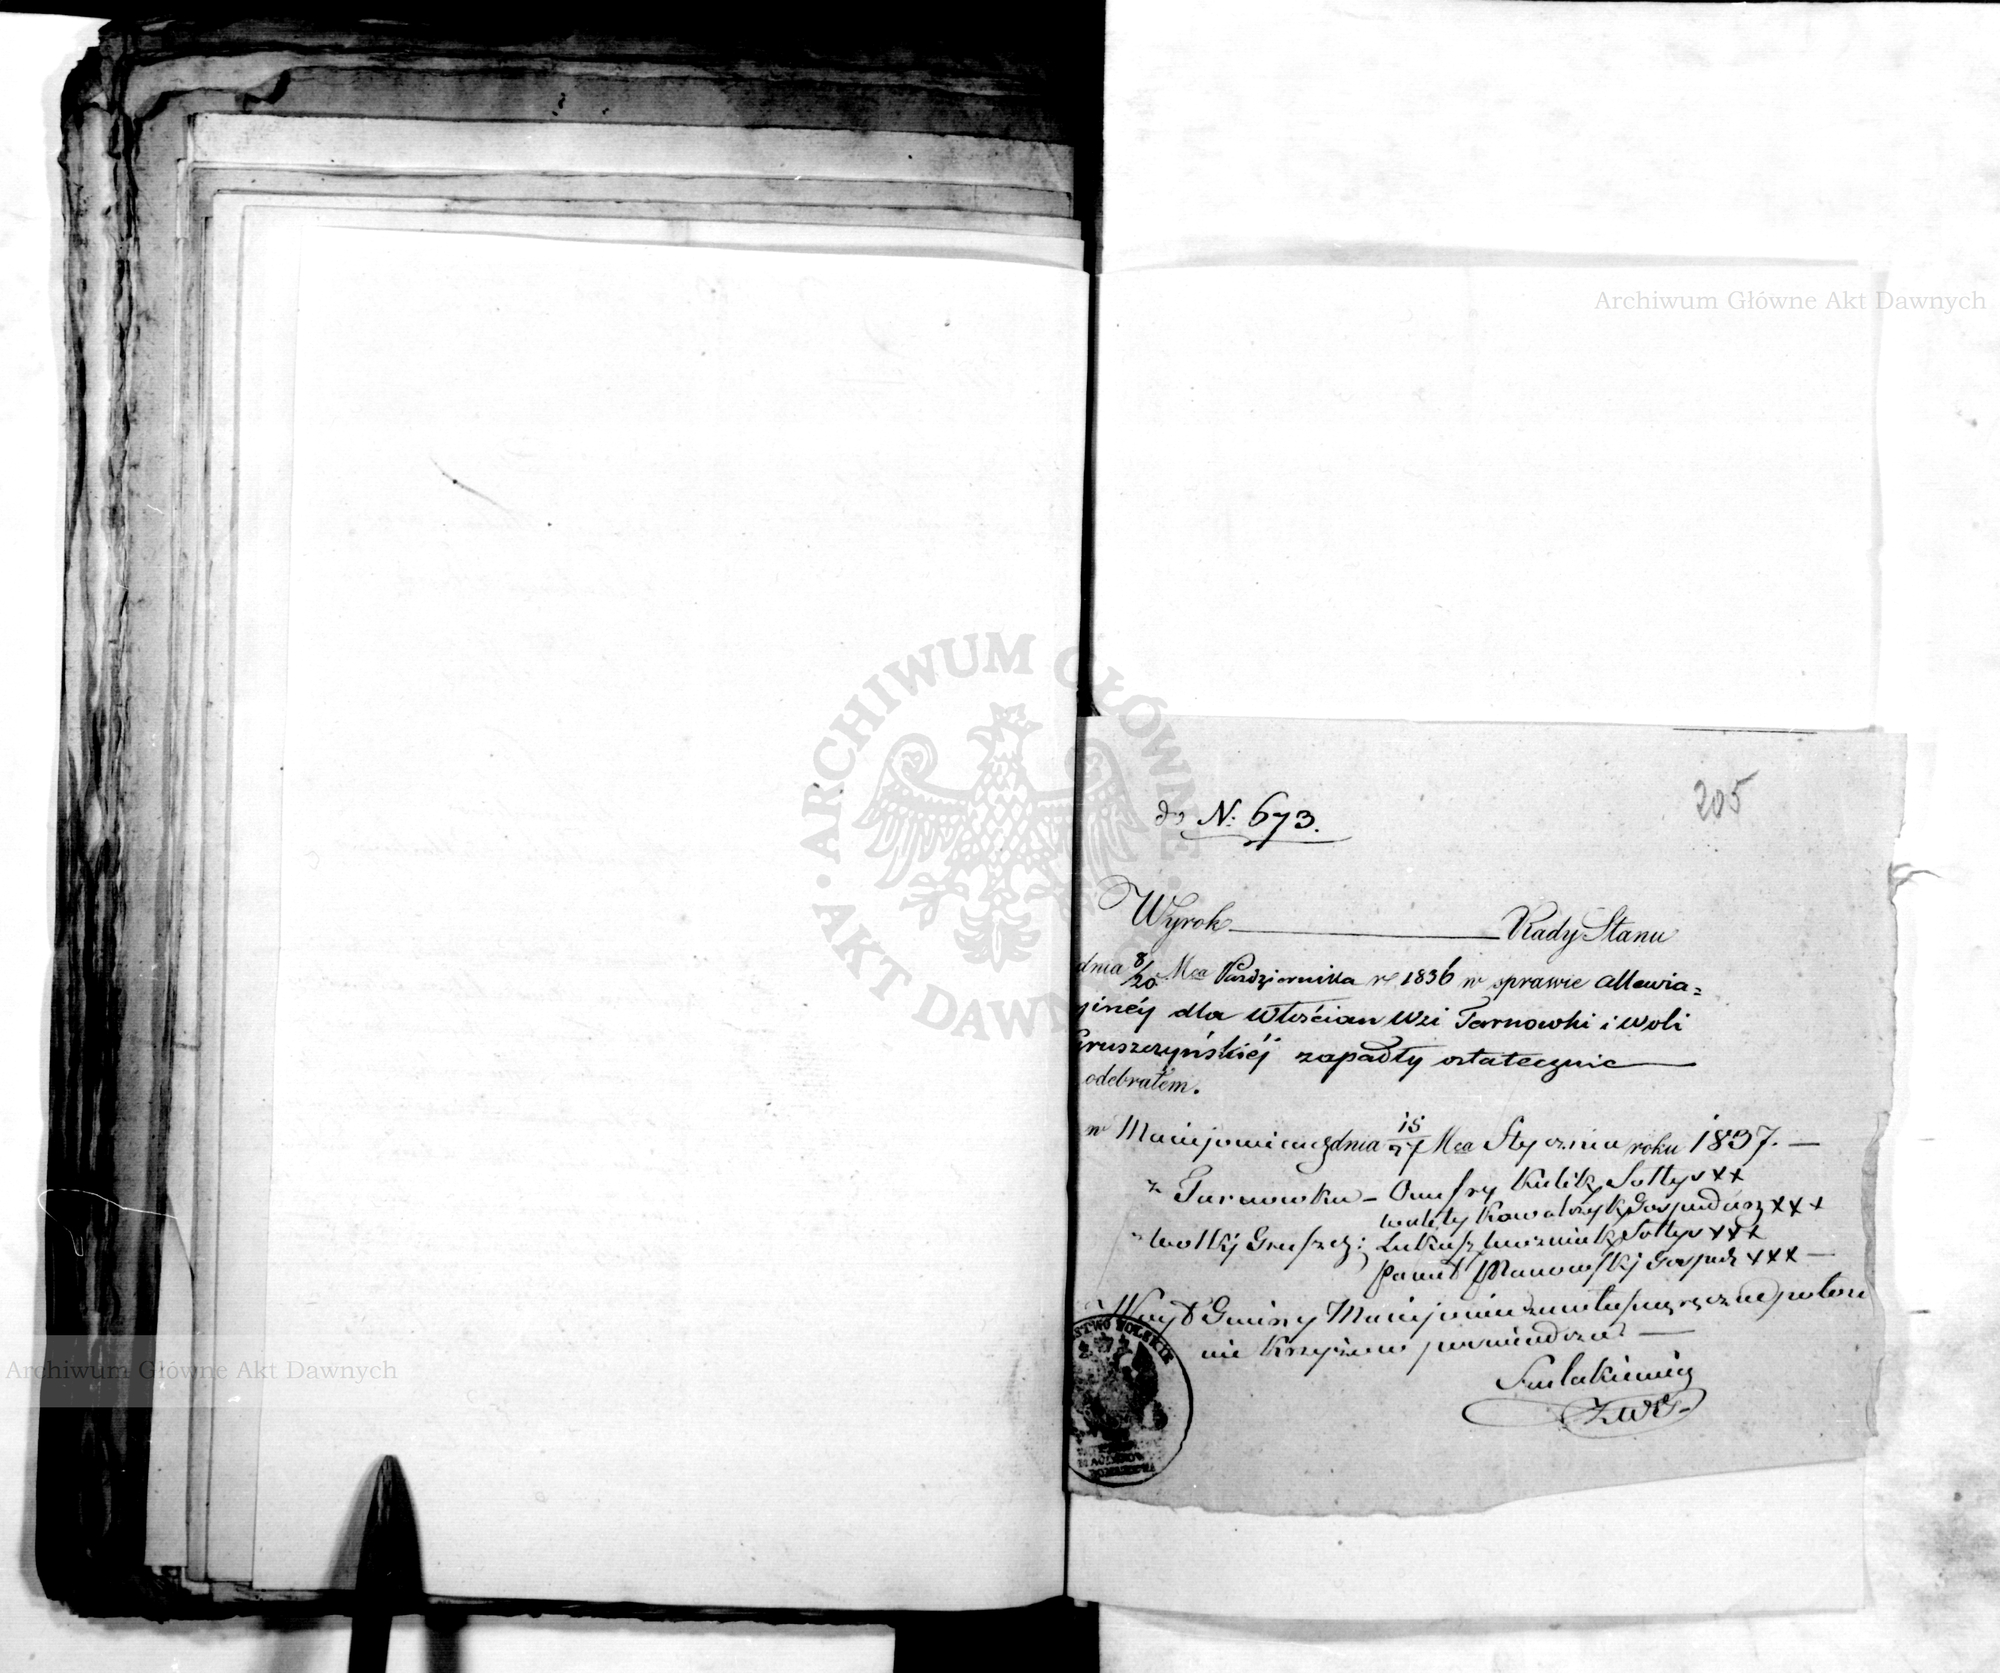 Archiwum Główne Akt Dawnych
ARCHIWUM GŁÓWNE AKT DAWNYCH
205
do N: 673.
Wyrok Rady Stanu
dnia 8/20 Mca Października r. 1836 w sprawie allewia=
yinéy dla Włościan Wsi Tarnowki i Woli
Gruszczyńskiéj zapadły ostatecznie
odebrałem.
w Maciejowicach dnia 15/27 Mca Stycznia roku 1837. —
z Tarnowka – Onufry Kulik Sołtys XX
Walęty Kowalczyk Gospodarz XXX
z Wolki Gruszcz: Łukasz Woźniak Sołtys XXX
Paweł Manowski Gospod XXX —
Woyt Gminy Maciejowice
nie Krzyżow poswiadcza —
ZWG.
Archiwum Główne Akt Dawnych